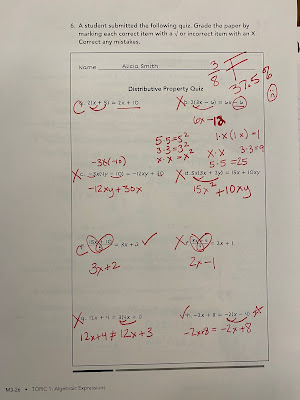 6. A student submitted the following quiz. Grade the paper by
marking each correct item with a √ or incorrect item with an X
Correct any mistakes.
Name Alicia Smith
3/8
37.5%
Distributive Property Quiz
a. 2(x + 5) = 2x + 10
X b. 3(2x − 6) = 6x − 6
6x − 18
5·5=5²
3·3=3²
x·x=x²
1·x(1x)=1
x·x 3·3=9
5·5=25
-3x(-10)
X c. −3x(4y − 10) = −12xy + 30
-12xy+30x
X d. 5x(3x + 2y) = 15x + 10xy
15x² +10xy
= 3x + 2 ✓
3x+2
X f. = 2x + 1
2x-1
X g. 12x + 4 = 3(4x + 1)
12x+4 ≠ 12x+3
√ h. −2x + 8 = −2(x − 4)
-2x+8 = -2x+8
M3-26 • TOPIC 1: Algebraic Expressions